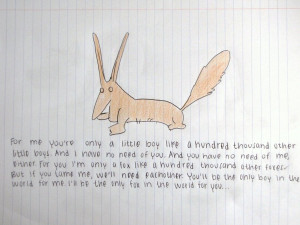 For me you're only a little boy like a hundred thousand other
little boys. And I have no need of you. And you have no need of me,
either. For you I'm only a fox like a hundred thousand other foxes.
But if you tame me, we'll need eachother. You'll be the only boy in the
world for me. I'll be the only fox in the world for you...